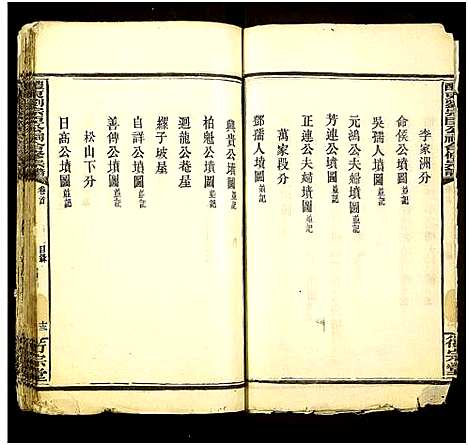 李家洲分
命侯公墳圖 並記
吳孺人墳圖 並記
元鴻公夫婦墳圖 並記
芳連公墳圖 並記
正連公夫婦墳圖 並記
萬家段分
鄧孺人墳圖 並記
興貴公墳圖 並記
柏魁公墳圖 並記
迴龍公菴屋
縲子坡屋
自詳公墳圖 並記
善俾公墳圖 並記
松山下分
日高公墳圖 並記
卷首
目錄